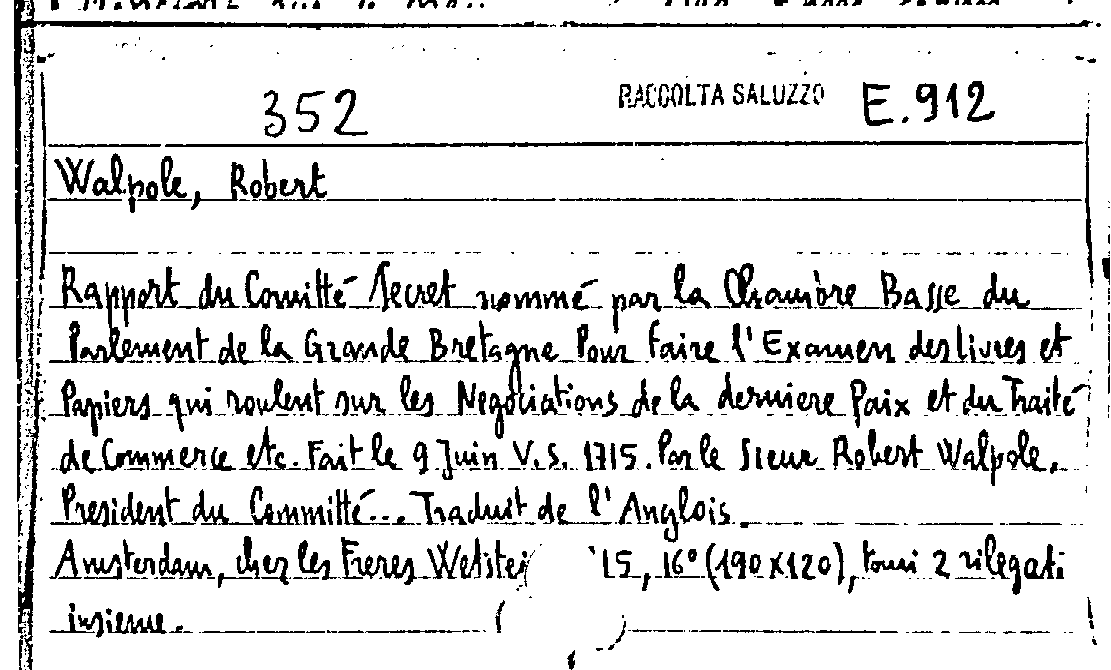 352 RACCOLTA SALUZZO E.912
Walpole, Robert
Rapport du Comitté Secret nommé par la Chambre Basse du
Parlement de la Grande Bretagne Pour faire l'Examen des livres et
Papiers qui roulent sur les Negotiations de la derniere Paix et du Traité
de Commerce etc. Fait le 9 Juin V.S. 1715. Par le Sieur Robert Walpole,
President du Committé... Traduit de l'Anglois.
Amsterdam, chez les Freres Wetstei 15, 16° (190x120), tomi 2 rilegati
insieme.